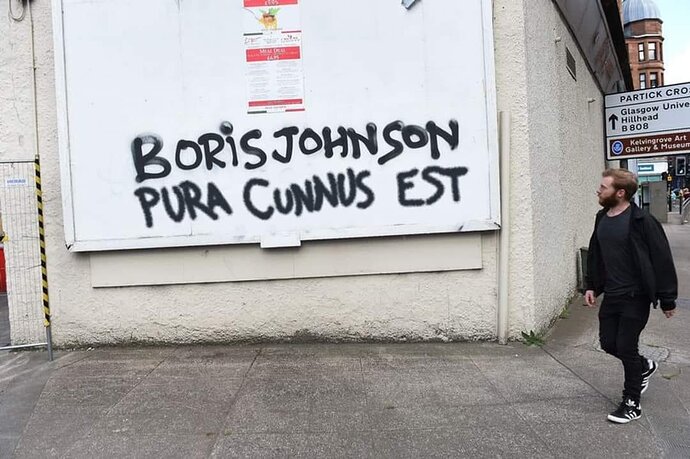 £4.95
MEAL DEAL
£4.95
BORIS JOHNSON
PURA CUNNUS EST
PARTICK CRO
Glasgow Unive
Hillhead
B 808
Kelvingrove Art
Gallery & Museum